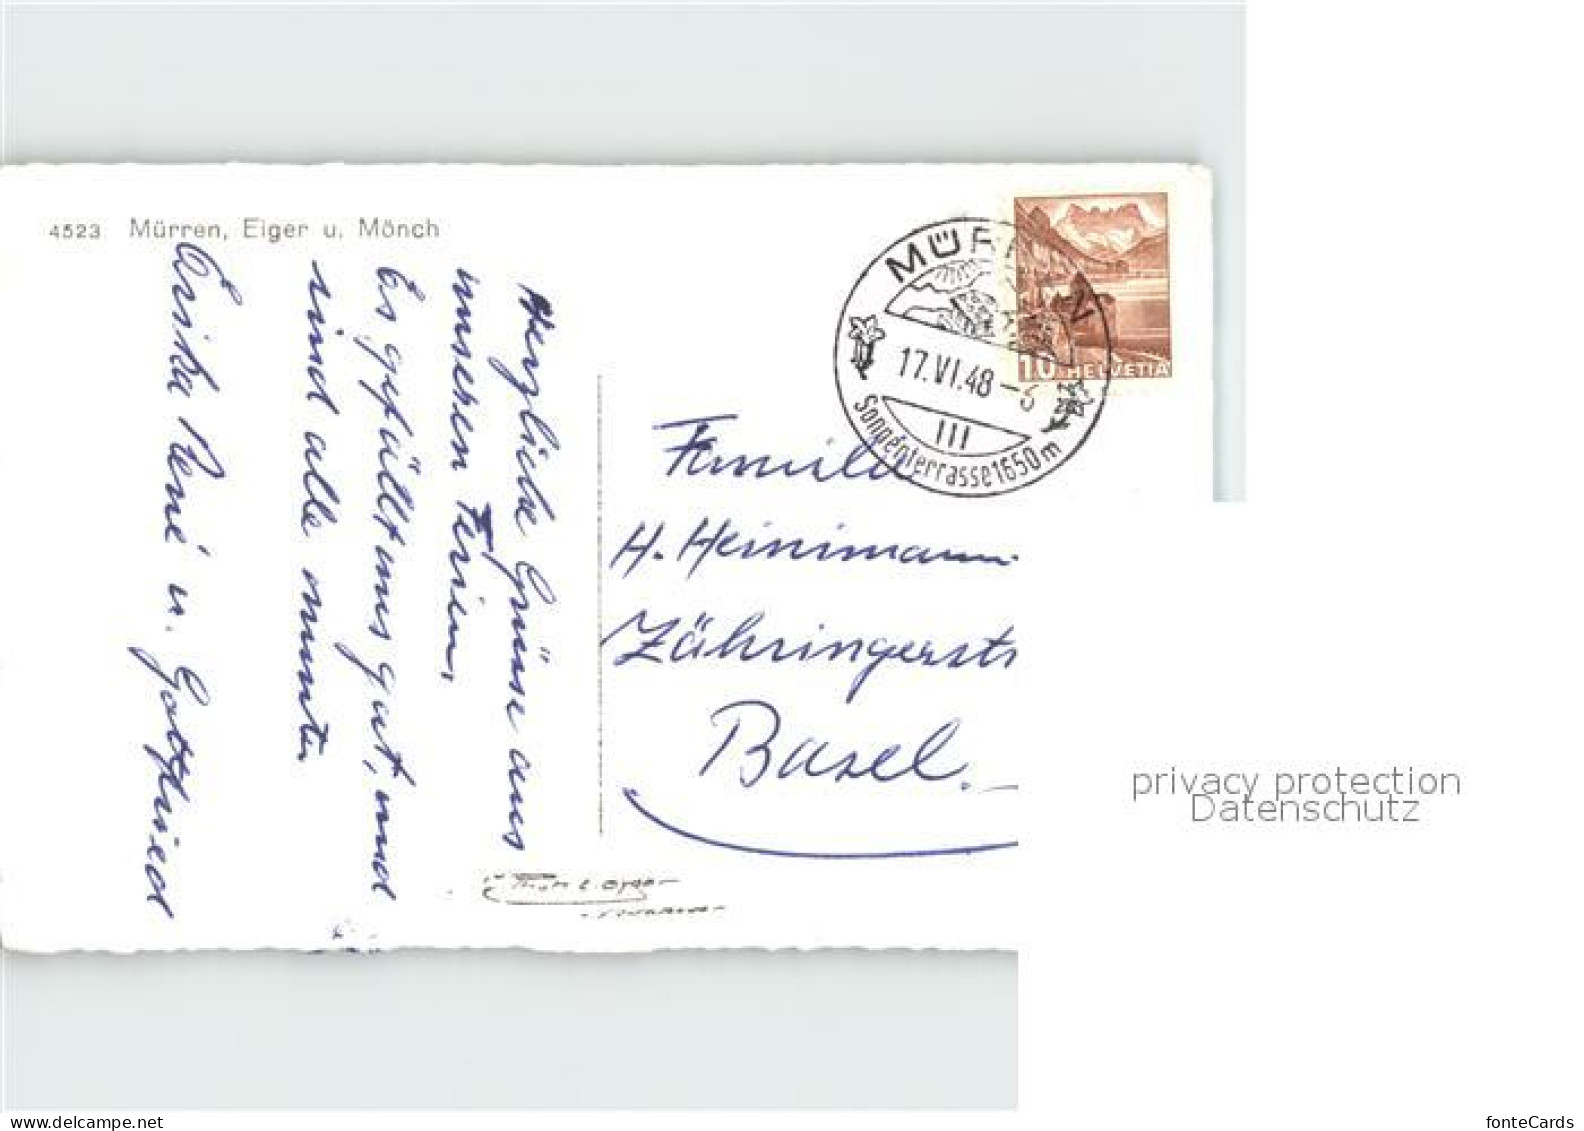 4523 Mürren, Eiger u. Mönch
Herzliche Grüsse aus
unseren Ferien,
Es gefällt uns gut, und
sind alle munter
Erika René u. Gottfried
MÜRREN
17.VI.48-
III
Sonnenterrasse 1650 m
10 HELVETIA
Familie
H. Heinimann
Zähringerstr
Basel.
privacy protection
Datenschutz
fonteCards